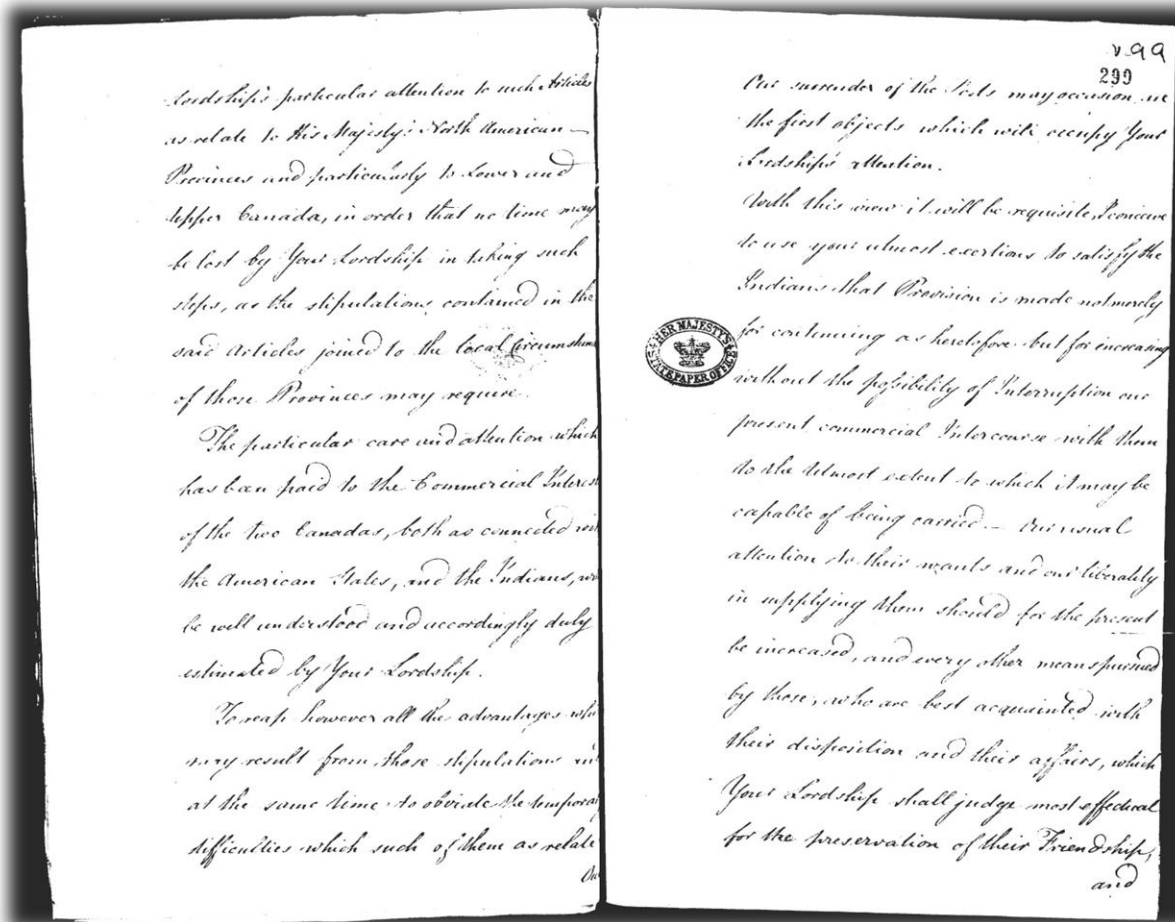 Lordship's particular attention to such Articles
as relate to His Majesty's North American –
Provinces and particularly to Lower and
Upper Canada, in order that no time may
be lost by Your Lordship in taking such
steps, as the stipulations contained in the
said Articles joined to the local Circumstan
of those Provinces may require.
The particular care and attention which
has been paid to the Commercial Interest
of the two Canadas, both as connected wit
the American States, and the Indians, wi
be well understood and accordingly duly
estimated by Your Lordship.
To reap however all the advantages whi
may result from those stipulations an
at the same time to obviate the temporar
difficulties which such of them as relate
Our
v.99
299
Our surrender of the Posts may occasion are
the first objects which will occupy Your
Lordship's attention.
With this view it will be requisite, I conceive
to use your utmost exertions to satisfy the
Indians that Provision is made not merely
for continuing as heretofore but for increasing
without the possibility of Interruption our
present commercial Intercourse with them
to the Utmost extent to which it may be
capable of being carried – Our usual
attention to their wants and our liberality
in supplying them should for the present
be increased, and every other means pursued
by those, who are best acquainted with
their disposition and their affairs, which
Your Lordship shall judge most effectual
for the preservation of their Friendship,
and
HER MAJESTY'S
STATE PAPER OFFICE